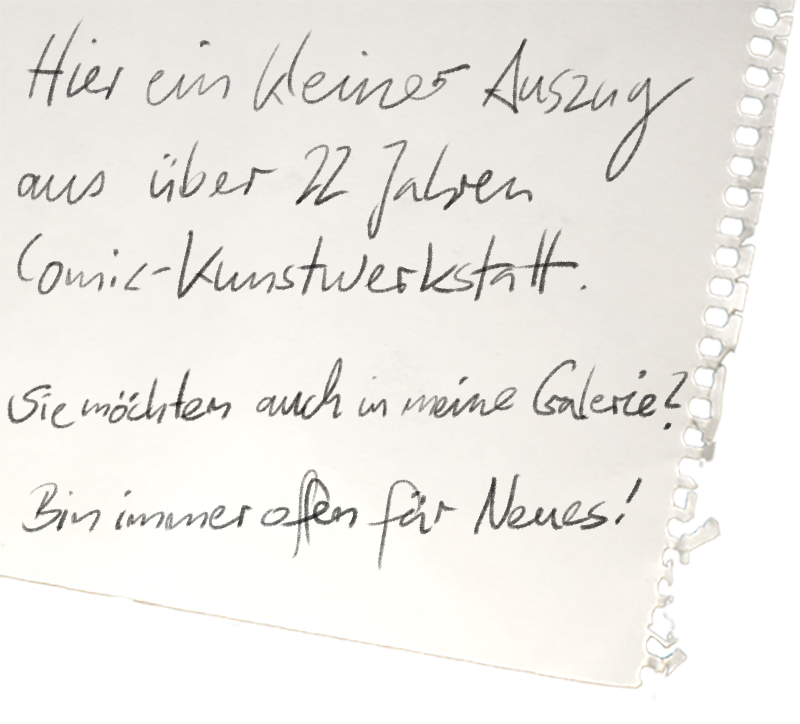 Hier ein kleiner Auszug
aus über 22 Jahren
Comic-Kunstwerkstatt.
Sie möchten auch in meine Galerie?
Bin immer offen für Neues!